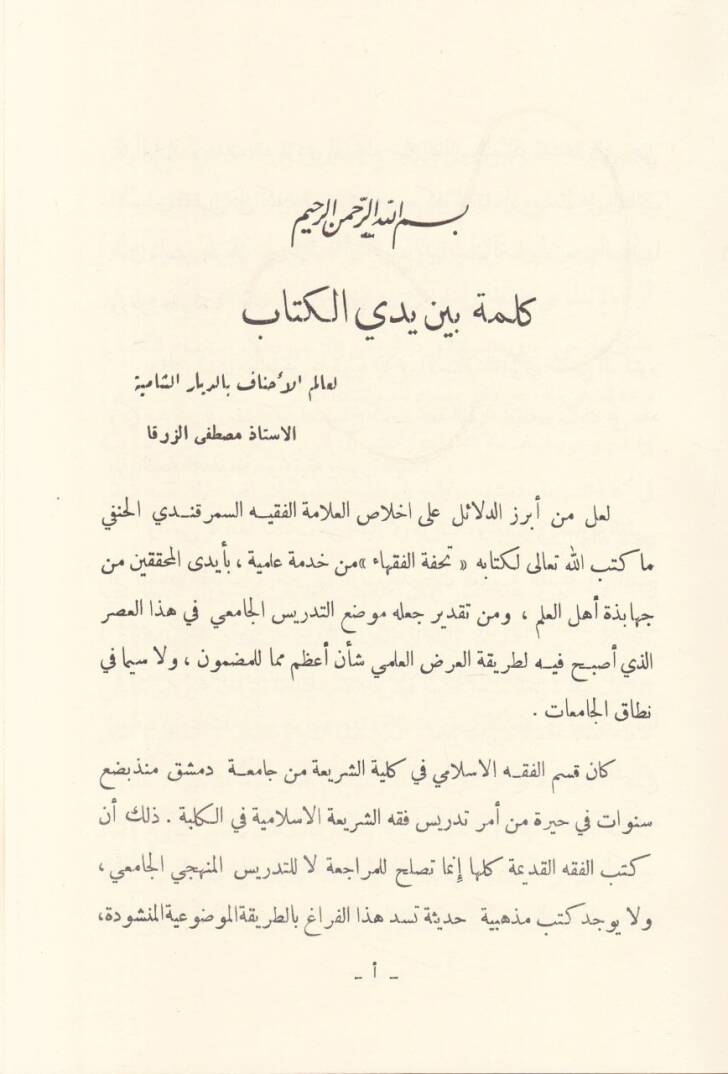 بسم الله الرحمن الرحيم
كلمة بين يدي الكتاب
لعالم الأحناف بالديار الشامية
الاستاذ مصطفى الزرقا
لعل من أبرز الدلائل على اخلاص العلامة الفقيه السمرقندي الحنفي
ما كتب الله تعالى لكتابه « تحفة الفقهاء »من خدمة علمية ، بأيدى المحققين من
جهابذة أهل العلم ، ومن تقدير جعله موضع التدريس الجامعي في هذا العصر
الذي أصبح فيه لطريقة العرض العلمي شأن أعظم مما للمضمون ، ولا سيما في
نطاق الجامعات .
كان قسم الفقه الاسلامي في كلية الشريعة من جامعة دمشق منذ بضع
سنوات في حيرة من أمر تدريس فقه الشريعة الاسلامية في الكلية . ذلك أن
كتب الفقه القديمة كلها إنما تصلح للمراجعة لا للتدريس المنهجي الجامعي ،
ولا يوجد كتب مذهبية حديثة تسد هذا الفراغ بالطريقة الموضوعية المنشودة،
- أ -